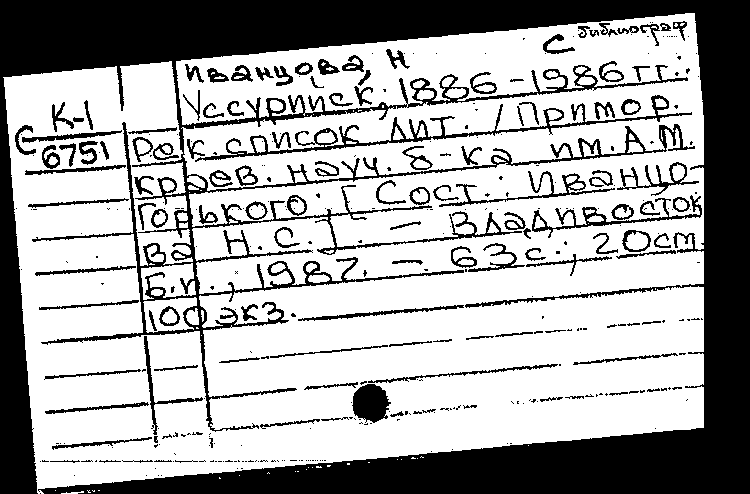 С библиограф
Иванцова, Н
Уссурийск, 1886-1986 гг.:
К-1
С 6751
Рек. список лит. / Примор.
краев. науч. б-ка им. А.М.
Горького; [Сост.: Иванцо-
ва Н.С.]. — Владивосток
Б.и., 1987. — 63 с.; 20 см.
100 экз.